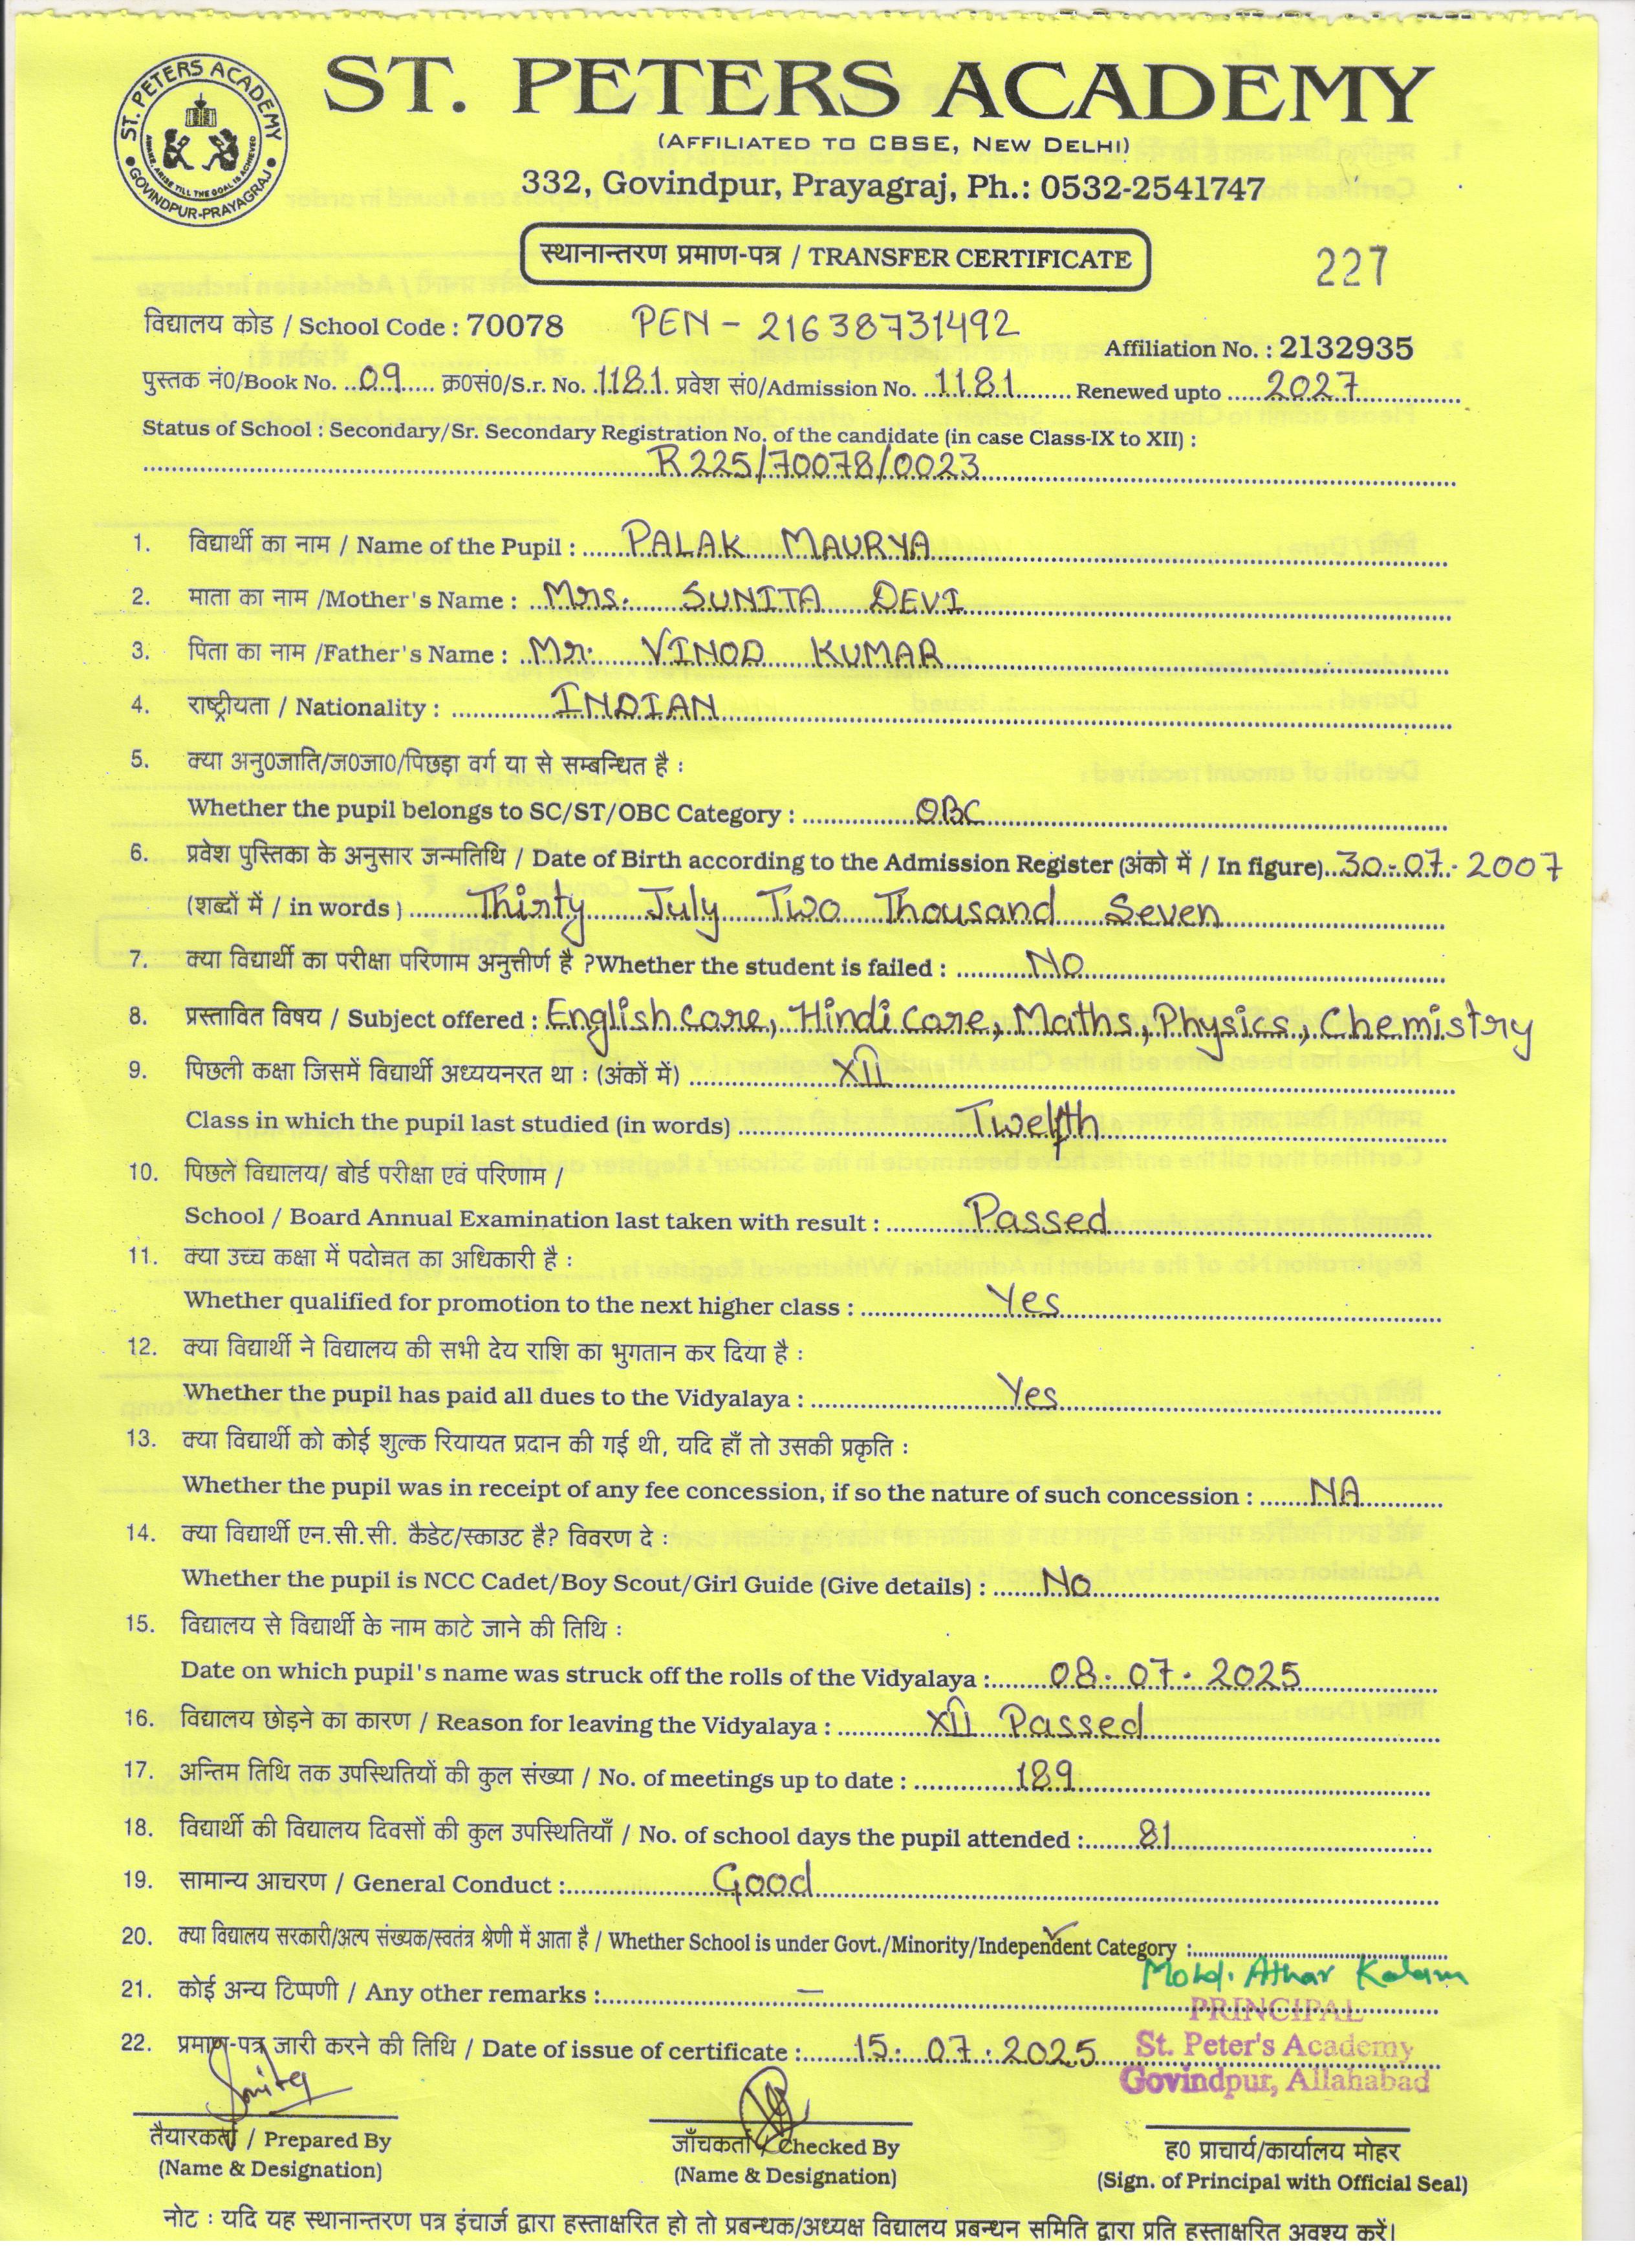 ST. PETERS ACADEMY
ST. PETERS ACADEMY
AWAKE, ARISE TILL THE GOAL IS ACHIEVED
GOVINDPUR-PRAYAGRAJ
(AFFILIATED TO CBSE, NEW DELHI)
332, Govindpur, Prayagraj, Ph.: 0532-2541747
स्थानान्तरण प्रमाण-पत्र / TRANSFER CERTIFICATE 227
विद्यालय कोड / School Code : 70078 PEN - 21638731492
Affiliation No. : 2132935
पुस्तक नं0/Book No. 09 क्र0सं0/S.r. No. 1181 प्रवेश सं0/Admission No. 1181 Renewed upto 2027
Status of School : Secondary/Sr. Secondary Registration No. of the candidate (in case Class-IX to XII) :
R225/70078/0023
1. विद्यार्थी का नाम / Name of the Pupil : PALAK MAURYA
2. माता का नाम /Mother's Name : Mrs. SUNITA DEVI
3. पिता का नाम /Father's Name : Mr. VINOD KUMAR
4. राष्ट्रीयता / Nationality : INDIAN
5. क्या अनु0जाति/ज0जा0/पिछड़ा वर्ग या से सम्बन्धित है :
Whether the pupil belongs to SC/ST/OBC Category : OBC
6. प्रवेश पुस्तिका के अनुसार जन्मतिथि / Date of Birth according to the Admission Register (अंको में / In figure) 30-07-2007
(शब्दों में / in words ) Thirty July Two Thousand Seven
7. क्या विद्यार्थी का परीक्षा परिणाम अनुत्तीर्ण है ?Whether the student is failed : NO
8. प्रस्तावित विषय / Subject offered : English core, Hindi core, Maths, Physics, Chemistry
9. पिछली कक्षा जिसमें विद्यार्थी अध्ययनरत था : (अंकों में) XII
Class in which the pupil last studied (in words) Twelfth
10. पिछले विद्यालय/ बोर्ड परीक्षा एवं परिणाम /
School / Board Annual Examination last taken with result : Passed
11. क्या उच्च कक्षा में पदोन्नत का अधिकारी है :
Whether qualified for promotion to the next higher class : Yes
12. क्या विद्यार्थी ने विद्यालय की सभी देय राशि का भुगतान कर दिया है :
Whether the pupil has paid all dues to the Vidyalaya : Yes
13. क्या विद्यार्थी को कोई शुल्क रियायत प्रदान की गई थी, यदि हाँ तो उसकी प्रकृति :
Whether the pupil was in receipt of any fee concession, if so the nature of such concession : NA
14. क्या विद्यार्थी एन.सी.सी. कैडेट/स्काउट है? विवरण दे :
Whether the pupil is NCC Cadet/Boy Scout/Girl Guide (Give details) : No
15. विद्यालय से विद्यार्थी के नाम काटे जाने की तिथि :
Date on which pupil's name was struck off the rolls of the Vidyalaya : 08.07.2025
16. विद्यालय छोड़ने का कारण / Reason for leaving the Vidyalaya : XII Passed
17. अन्तिम तिथि तक उपस्थितियों की कुल संख्या / No. of meetings up to date : 189
18. विद्यार्थी की विद्यालय दिवसों की कुल उपस्थितियाँ / No. of school days the pupil attended : 81
19. सामान्य आचरण / General Conduct : Good
20. क्या विद्यालय सरकारी/अल्प संख्यक/स्वतंत्र श्रेणी में आता है / Whether School is under Govt./Minority/Independent Category :
Mohd. Athar Kalam
21. कोई अन्य टिप्पणी / Any other remarks : —
PRINCIPAL
22. प्रमाण-पत्र जारी करने की तिथि / Date of issue of certificate : 15.07.2025
St. Peter's Academy
Govindpur, Allahabad
तैयारकर्ता / Prepared By
(Name & Designation)
जाँचकर्ता / Checked By
(Name & Designation)
ह0 प्राचार्य/कार्यालय मोहर
(Sign. of Principal with Official Seal)
नोट : यदि यह स्थानान्तरण पत्र इंचार्ज द्वारा हस्ताक्षरित हो तो प्रबन्धक/अध्यक्ष विद्यालय प्रबन्धन समिति द्वारा प्रति हस्ताक्षरित अवश्य करें।